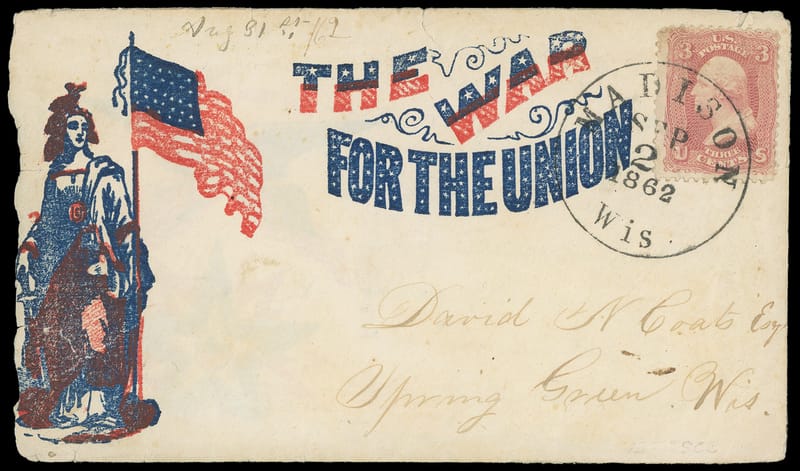 Aug 31st /62
THE WAR
FOR THE UNION
3 U.S. 3
POSTAGE
THREE
CENTS
U S
MADISON
SEP
2
1862
Wis
David N Coats Esq
Spring Green Wis.